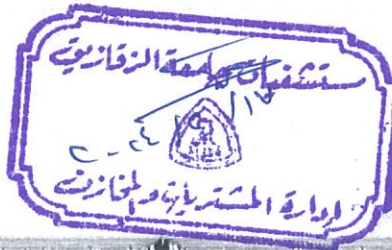 مستشفيات جامعة الزقازيق
٢٠٢٤/ /١٧
إدارة المشتريات والمخازن